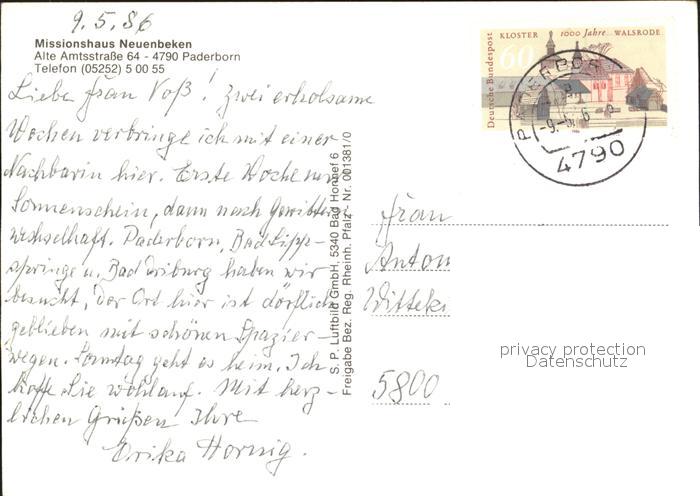 9.5.86
Missionshaus Neuenbeken
Alte Amtsstraße 64 - 4790 Paderborn
Telefon (05252) 5 00 55
Liebe Frau Voß! Zwei erholsame
Wochen verbringe ich mit einer
Nachbarin hier. Erste Woche nur
Sonnenschein, dann nach Gewitter
wechselhaft. Paderborn, Bad Lipp-
springe u. Bad Driburg haben wir
besucht, der Ort hier ist dörflich
geblieben mit schönen Spazier-
wegen. Sonntag geht es heim. Ich
hoffe Sie wohlauf. Mit herz-
lichen Grüßen Ihre
Erika Hornig.
S. P. Luftbild GmbH, 5340 Bad Honnef 6
Freigabe Bez. Reg. Rheinh. Pfalz - Nr. 001381/0
Deutsche Bundespost
KLOSTER 1000 Jahre... WALSRODE
60
PADERBORN
4790
Frau
Anton
Witteki
5800
privacy protection
Datenschutz